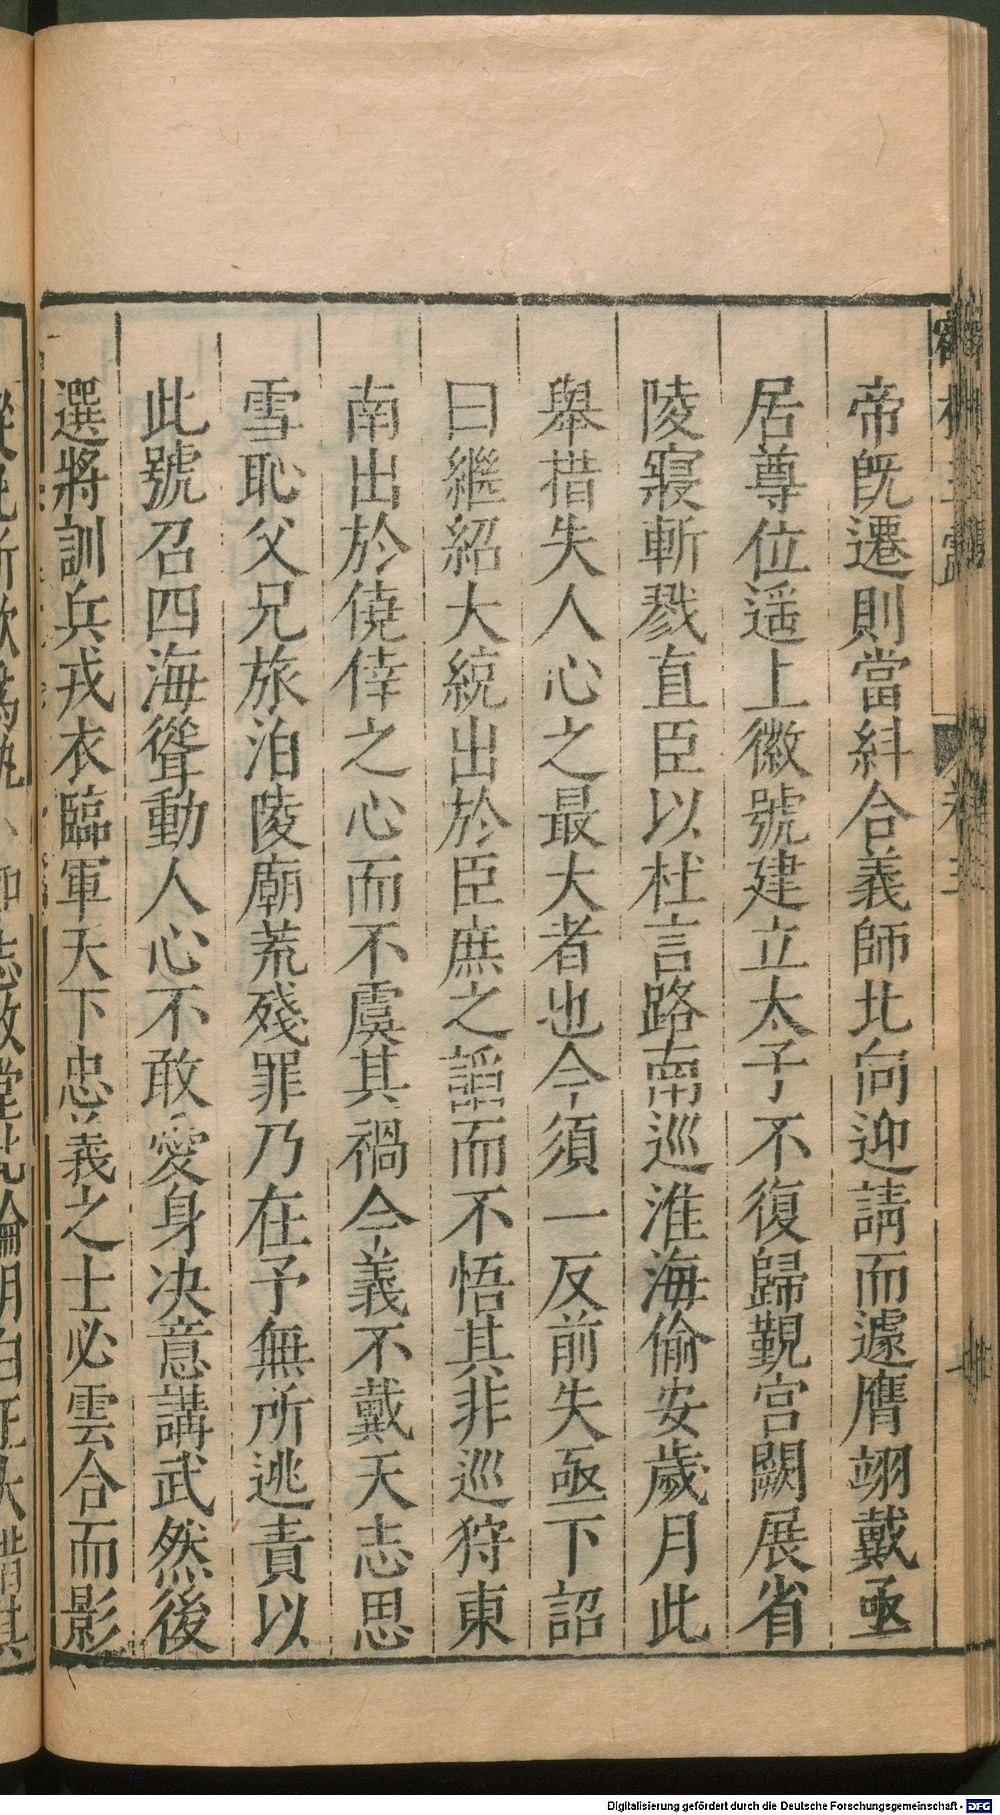 帝旣遷則當紏合義師北向迎請而遽膺翊戴亟
居尊位遥上徽號建立太子不復歸覲宫闕展省
陵寢斬戮直臣以杜言路南巡淮海偷安歲月此
舉措失人心之最大者也今須一反前失亟下詔
曰繼紹大統出於臣庶之謟而不悟其非巡狩東
南出於僥倖之心而不虞其禍今義不戴天志思
雪恥父兄旅泊陵廟荒殘罪乃在予無所逃責以
此號召四海聳動人心不敢愛身决意講武然後
選將訓兵戎衣臨軍天下忠義之士必雲合而影
Digitalisierung gefördert durch die Deutsche Forschungsgemeinschaft - DFG